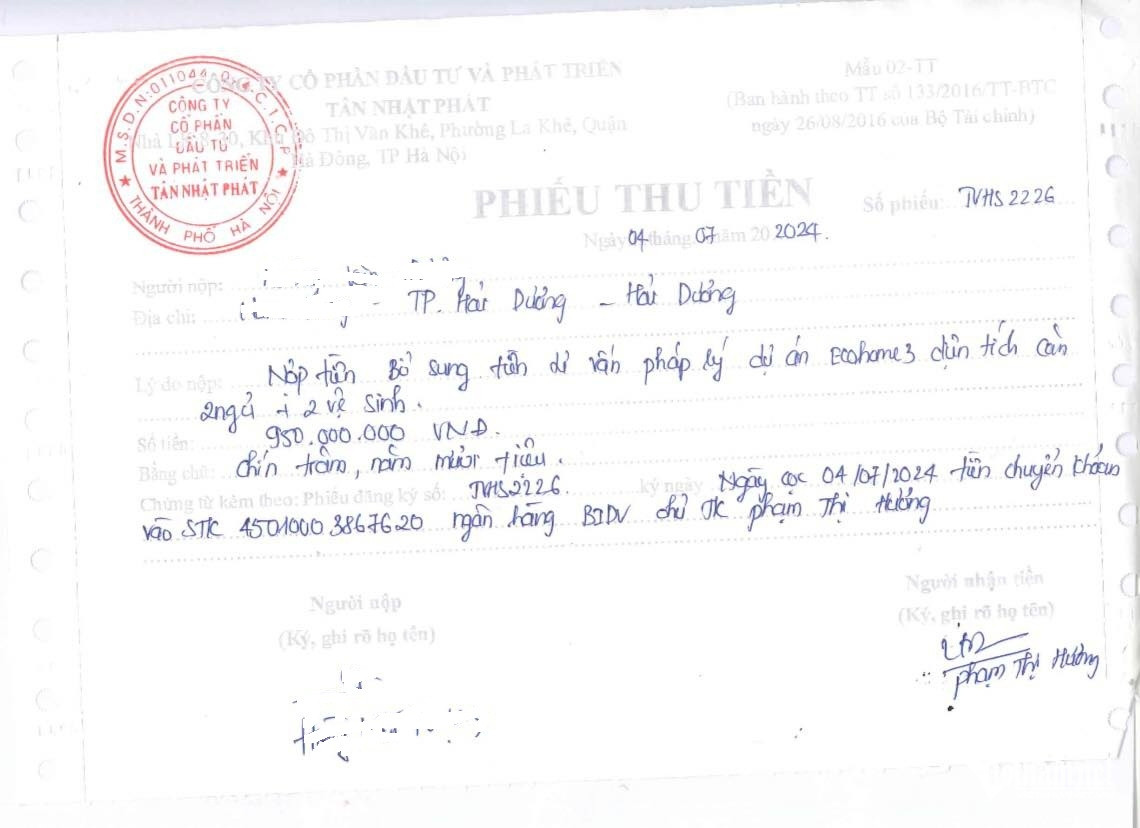 CÔNG TY CỔ PHẦN ĐẦU TƯ VÀ PHÁT TRIỂN
TÂN NHẬT PHÁT
Khu Đô Thị Văn Khê, Phường La Khê, Quận
Hà Đông, TP Hà Nội
Mẫu 02-TT
(Ban hành theo TT số 133/2016/TT-BTC
ngày 26/08/2016 của Bộ Tài chính)
M.S.D.N:011044 C.T.C.P
CÔNG TY
CỔ PHẦN
ĐẦU TƯ
VÀ PHÁT TRIỂN
TÂN NHẬT PHÁT
★ THÀNH PHỐ HÀ NỘI ★
PHIẾU THU TIỀN
Số phiếu: TVHS 2226
Ngày 04 tháng 07 năm 20 2024.
Người nộp:
Địa chỉ: - TP. Hải Dương - Hải Dương
Lý do nộp: Nộp tiền Bổ sung tiền dự án Ecohome3 diện tích căn
2 ngủ + 2 vệ sinh.
Số tiền: 950.000.000 VNĐ.
Bằng chữ: chín trăm, năm mươi triệu.
Chứng từ kèm theo: Phiếu đăng ký số: TVHS2226. ký ngày Ngày cọc 04/07/2024 tiền chuyển khoản
vào STK 45010003867620 ngân hàng BIDV chủ TK phạm Thị Hưởng
Người nộp
(Ký, ghi rõ họ tên)
Người nhận tiền
(Ký, ghi rõ họ tên)
phạm Thị Hưởng